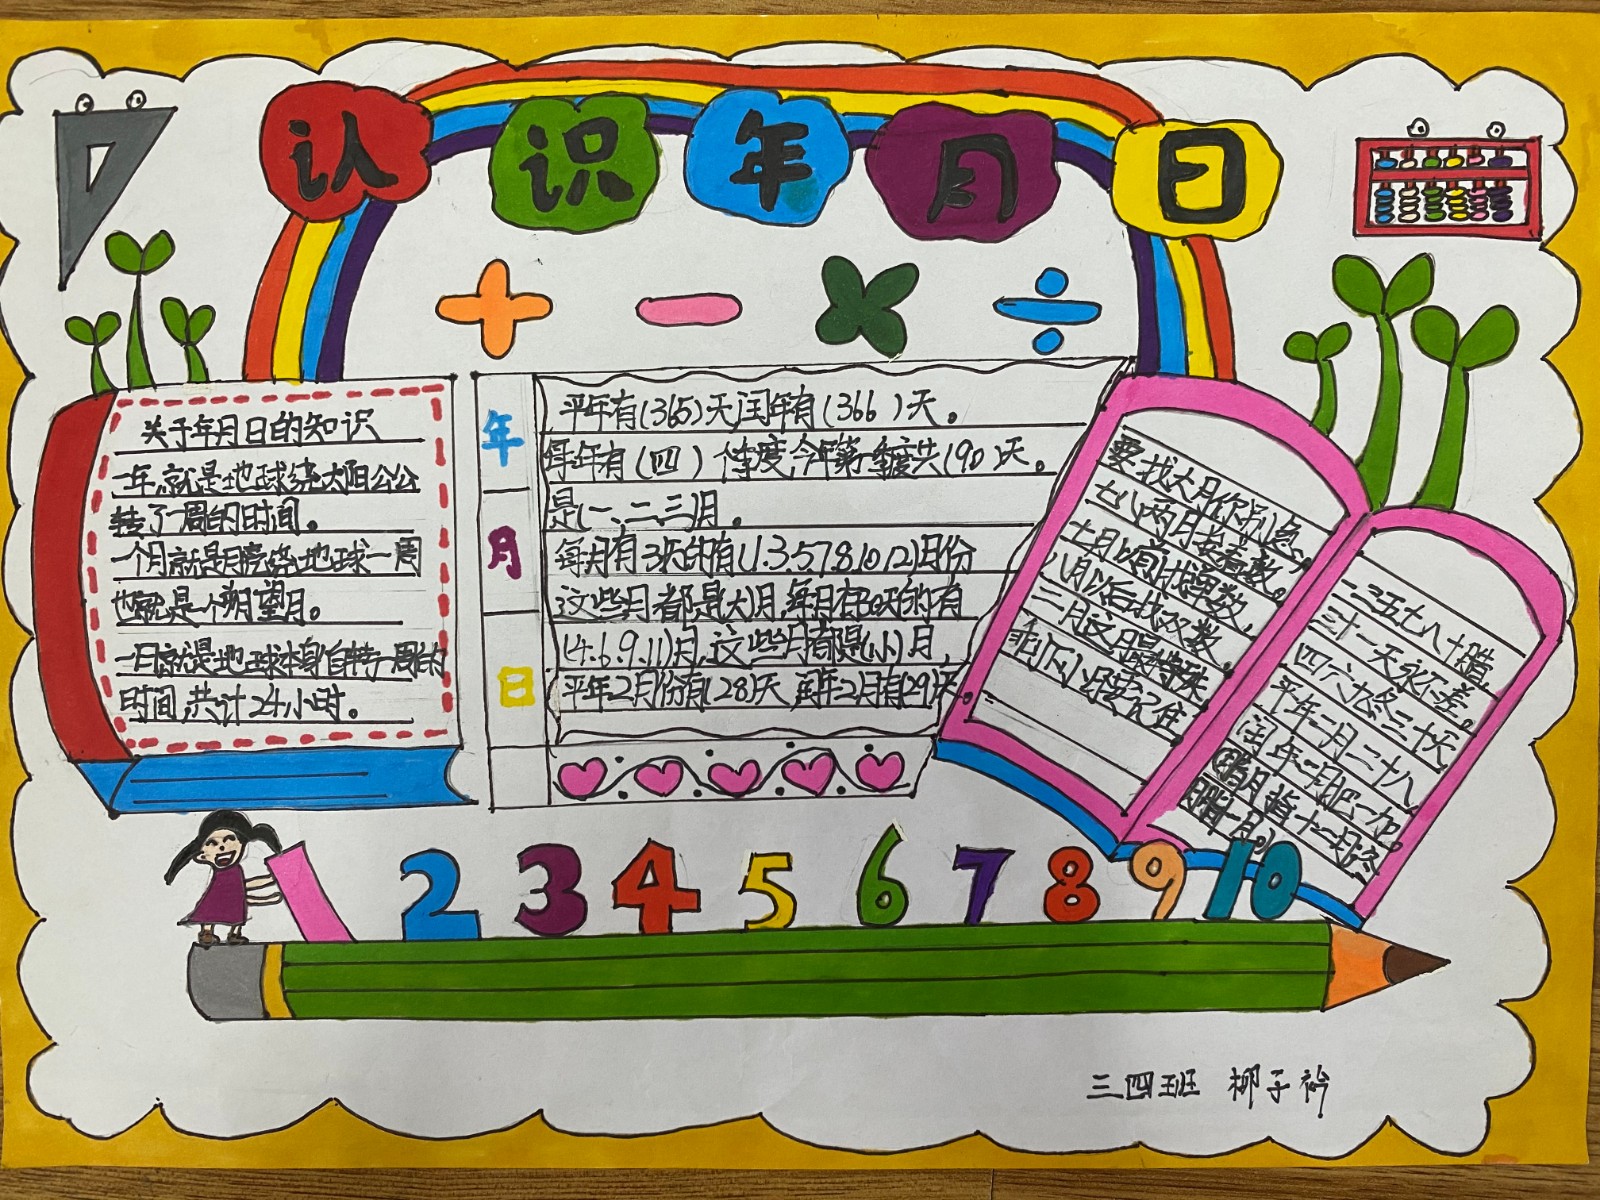 认识年月日
关于年月日的知识
一年就是地球绕太阳公公
转了一周的时间。
一个月就是月亮绕地球一周
也就是一个朔望月。
一日就是地球本身自转一周的
时间,共计24小时。
年
月
日
平年有(365)天闰年有(366)天。
每年有(四)个季度,今年第一季度共(90)天。
是(一、二、三)月。
每月有31天的有(1.3.5.7.8.10.12)月份
这些月都是大月,每月有30天的有
(4.6.9.11)月,这些月都是(小)月,
平年2月份有(28)天,闰年2月有(29)天。
要找大月你别急,
七八两月挨着数。
七月以前找单数,
八月以后找双数,
二月这月最特殊
剩下小月要记住
一三五七八十腊,
三十一天永不差。
四六九冬三十天
平年二月二十八
闰年二月把一加。
腊月指十二月,冬
月指十一月。)
2 3 4 5 6 7 8 9 10
三四班 柳子衿